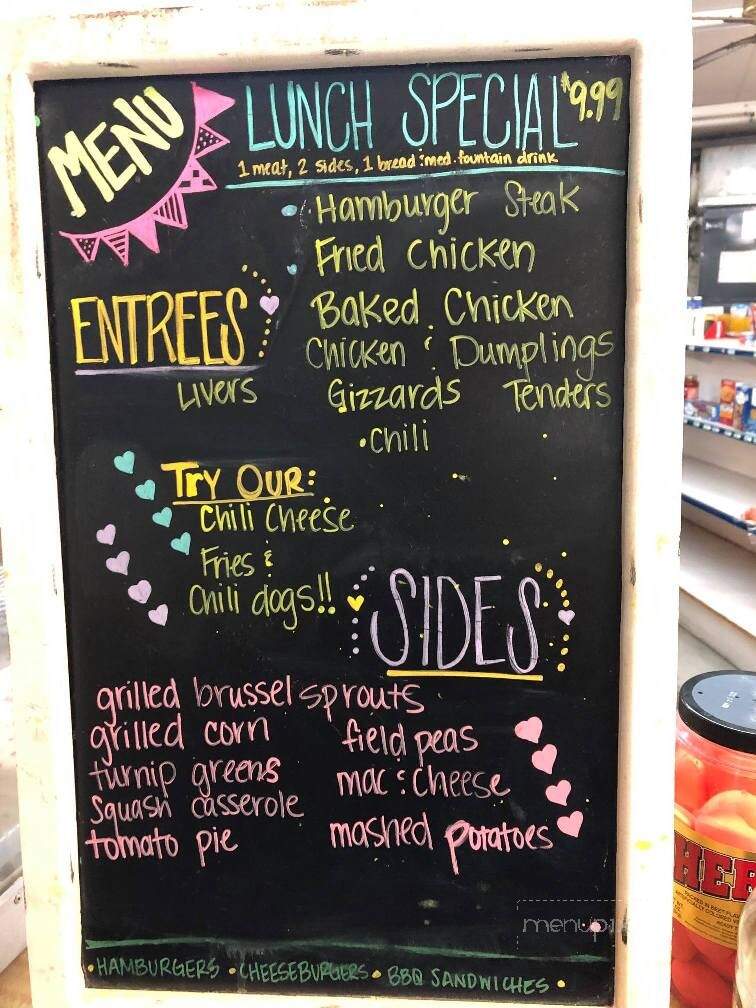 MENU
LUNCH SPECIAL $9.99
1 meat, 2 sides, 1 bread & med. fountain drink
• Hamburger Steak
• Fried Chicken
ENTREES
Baked Chicken
Chicken & Dumplings
Livers Gizzards Tenders
• Chili
TRY OUR:
Chili Cheese
Fries &
Chili dogs!!
SIDES
grilled brussel sprouts
grilled corn
field peas
turnip greens
mac & cheese
squash casserole
tomato pie
mashed potatoes
• HAMBURGERS • CHEESEBURGERS • BBQ SANDWICHES •
menupix
HER